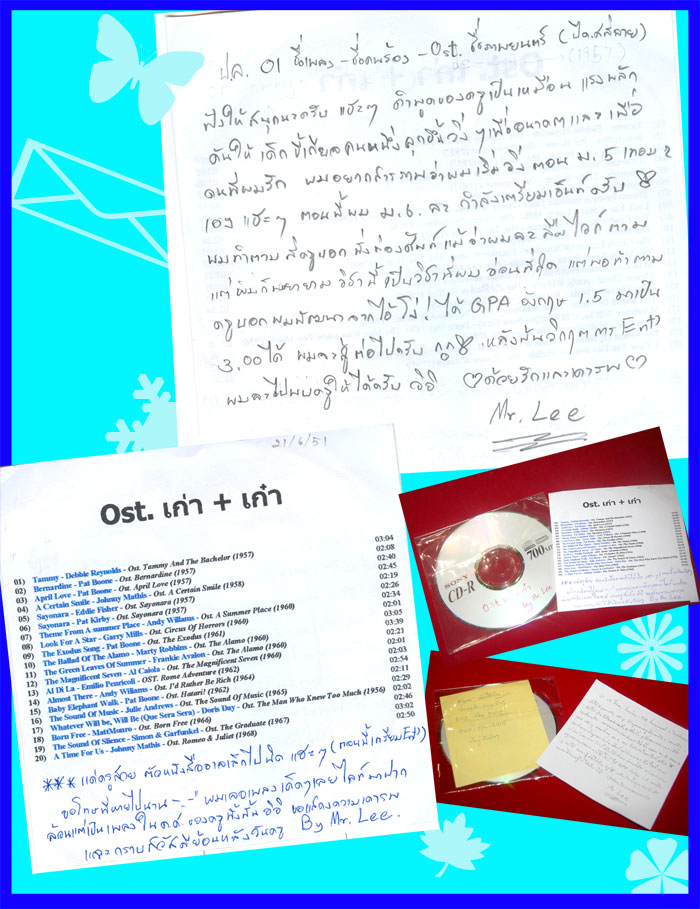 ป.ล. 01 ชื่อเพลง - ชื่อคนร้อง - Ost. ชื่อภาพยนตร์ (ปี ค.ศ.ที่ฉาย)
(1957)
ฟังให้สนุกนะครับ แฮะๆ คำพูดของครูเป็นเหมือน แรงผลัก
ดันให้ เด็กขี้เกียจคนหนึ่งลุกขึ้นวิ่งๆเพื่ออนาคตและ เพื่อ
คนที่ผมรัก ผมอยากสารภาพว่าผมเริ่มวิ่ง ตอน ม.5 เทอม 2
เอง แฮะๆ ตอนนี้ผม ม.6. ละ กำลังเตรียมเอ็นท์ครับ
ผมทำตาม ที่ครูบอก นั่งท่องศัพท์ แม้ว่าผมจะ ลืมไวก็ตาม
แต่ ผมก็พยายาม วิชานี้ เป็นวิชาที่ผม อ่อนที่สุด แต่พอทำตาม
ครูบอก ผมพัฒนาจากไอ้โง่! ได้ GPA อังกฤษ 1.5 มาเป็น
3.00 ได้ ผมจะสู้ ต่อไปครับ หลังพ้นวิกฤตการ Ent)
ผมจะไปพบครูให้ได้ครับ อิอิ ♡ด้วยรักและเคารพ♡
Mr. Lee
21/6/51
Ost. เก่า + เก๋า
01) Tammy - Debbie Reynolds - Ost. Tammy And The Bachelor (1957) 03:04
02) Bernardine - Pat Boone - Ost. Bernardine (1957) 02:08
03) April Love - Pat Boone - Ost. April Love (1957) 02:40
04) A Certain Smile - Johnny Mathis - Ost. A Certain Smile (1958) 02:45
05) Sayonara - Eddie Fisher - Ost. Sayonara (1957) 02:19
06) Sayonara - Pat Kirby - Ost. Sayonara (1957) 02:26
07) Theme From A summer Place - Andy Williams - Ost. A Summer Place (1960) 02:34
08) Look For A Star - Garry Mills - Ost. Circus Of Horrors (1960) 02:01
09) The Exodus Song - Pat Boone - Ost. The Exodus (1961) 03:05
10) The Ballad Of The Alamo - Marty Robbins - Ost. The Alamo (1960) 03:39
11) The Green Leaves Of Summer - Frankie Avalon - Ost. The Alamo (1960) 02:21
12) The Magnificent Seven - Al Caiola - Ost. The Magnificent Seven (1960) 02:01
13) Al Di La - Emilio Penricoli - OST. Rome Adventure (1962) 02:03
14) Almost There - Andy Wiliams - Ost. I'd Rather Be Rich (1964) 02:54
15) Baby Elephant Walk - Pat Boone - Ost. Hatari! (1962) 02:11
16) The Sound Of Music - Julie Andrews - Ost. The Sound Of Music (1965) 02:29
17) Whatever Will be, Will Be (Que Sera Sera) - Doris Day - Ost. The Man Who Knew Too Much (1956) 02:02
18) Born Free - MattMonro - Ost. Born Free (1966) 02:46
19) The Sound Of Silence - Simon & Garfunkel - Ost. The Graduate (1967) 03:02
20) A Time For Us - Johnny Mathis - Ost. Romeo & Juliet (1968) 02:50
*** แด่ครูสาย ตัวหนังสืออาจเล็กไปนิด แฮะๆ (ตอนนี้เตรียม Ent)
ขอโทษที่หายไปนาน -_-" ผมเจอเพลงเด็ดๆเลยไรท์มาฝาก
ล้วนแต่เป็นเพลงใน ค.ศ. ของครูทั้งนั้น อิอิ ขอแสดงความเคารพ
และ กราบสวัสดีย้อนหลังวันครู By Mr. Lee.
Ost. เก่า + เก๋า
SONY
CD-R
700MB
Ost เก่า + เก๋า
by Mr. Lee
Mr. Lee